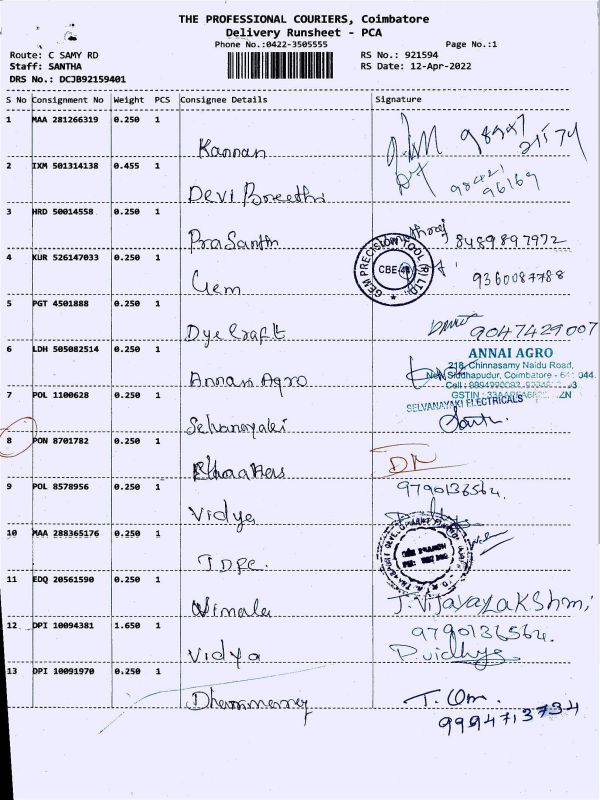 THE PROFESSIONAL COURIERS, Coimbatore
Delivery Runsheet - PCA
Phone No.:0422-3505555
Page No.:1
Route: C SAMY RD
RS No.: 921594
Staff: SANTHA
RS Date: 12-Apr-2022
DRS No.: DCJB92159401
S No Consignment No Weight PCS Consignee Details Signature
1 MAA 281266319 0.250 1
Kannan
2 IXM 501314138 0.455 1
98421
96169
Devi Preethi
3 HRD 50014558 0.250 1
Prasanth 8489897972
GEM PRECISION TOOL (P) LTD.
CBE-
4 KUR 526147033 0.250 1
Gem 9360087788
5 PGT 4501888 0.250 1
Dye Craft 9047429007
6 LDH 505082514 0.250 1
ANNAI AGRO
218, Chinnasamy Naidu Road,
New Siddhapudur, Coimbatore - 641 044.
Annai Agro
7 POL 1100628 0.250 1
SELVANAYAKI ELECTRICALS
Selvanayaki
8 PON 8701782 0.250 1
9 POL 8578956 0.250 1
9790136564.
Vidya
10 MAA 288365176 0.250 1
TDPC.
11 EDQ 20561590 0.250 1
Vimala J. VIJAYALAKSHMI
12 DPI 10094381 1.650 1
9790136564.
Vidya P. Vidhya
13 DPI 10091970 0.250 1
T. Om.
9994713734